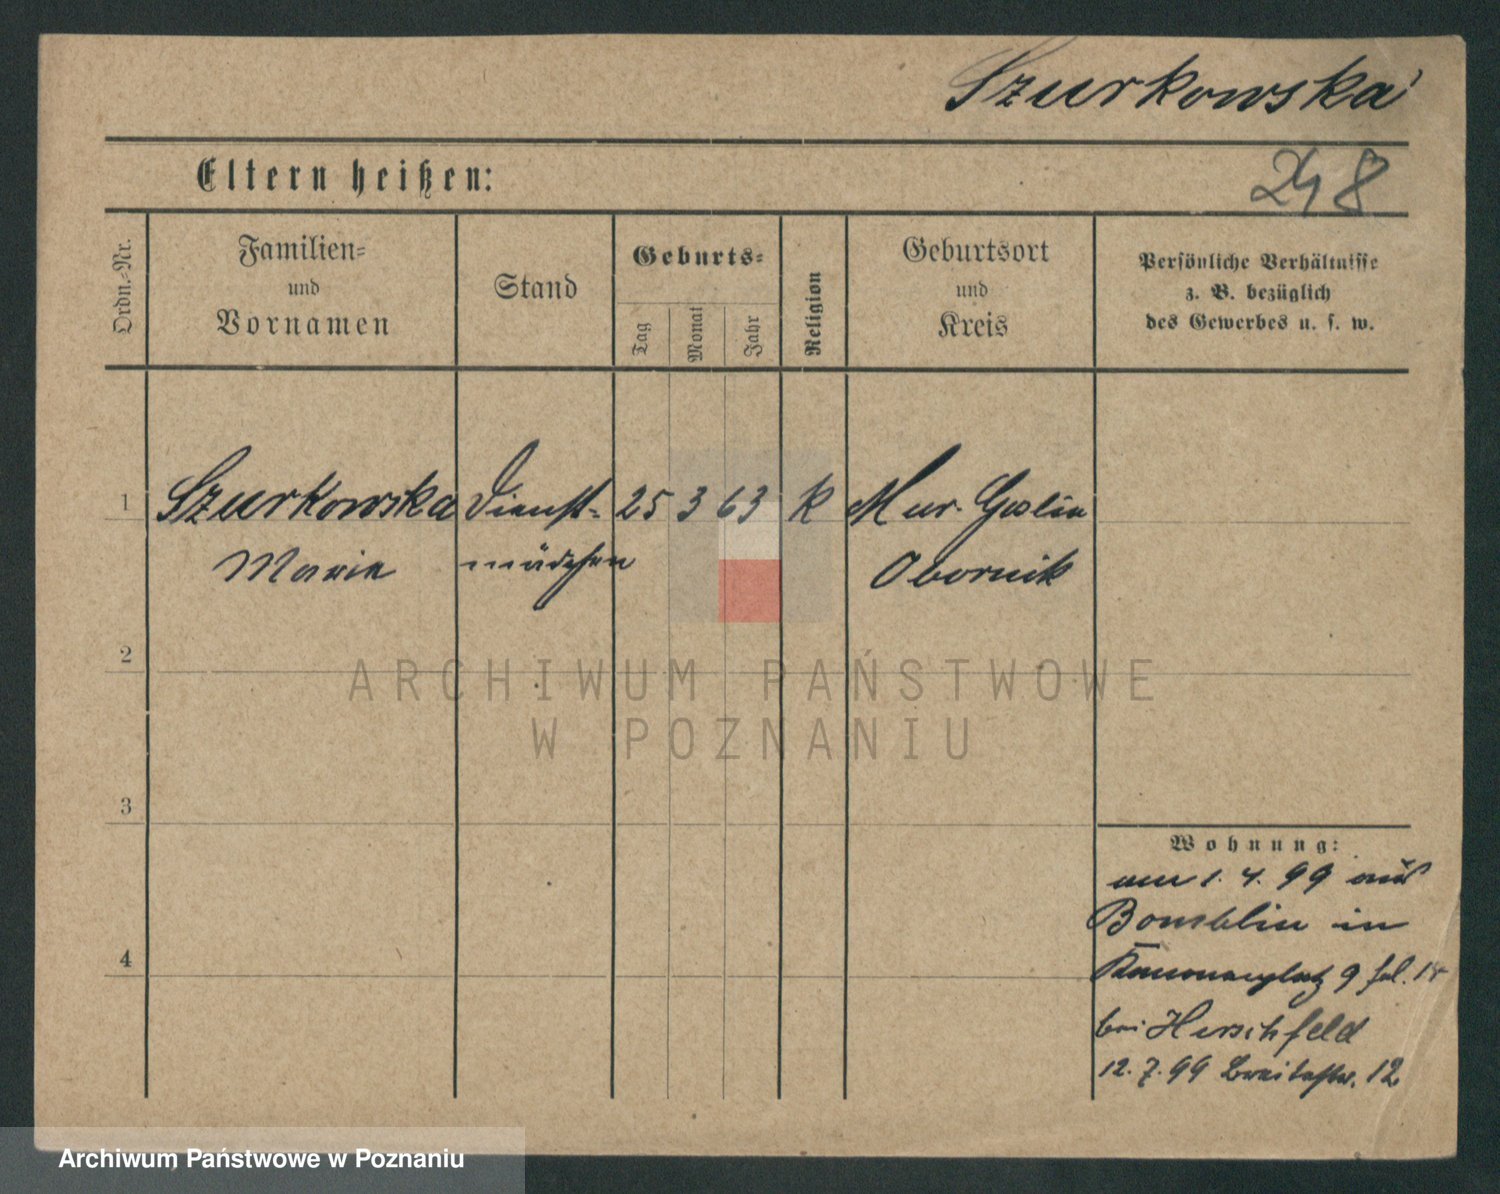 Szurkowska
Eltern heißen:
248
Ordn.-Nr.
Familien-
und
Vornamen
Stand
Geburts-
Tag
Monat
Jahr
Religion
Geburtsort
und
Kreis
Persönliche Verhältnisse
z. B. bezüglich
des Gewerbes u. s. w.
1 Szurkowska Dienst- 25 3 63 k Mur. Goslin
Marie mädchen Obornik
2
ARCHIWUM PAŃSTWOWE
W POZNANIU
3
Wohnung:
1. 4. 99 aus
in
9
4
bei Herschfeld
12. 7. 99 Breitestr. 12
Archiwum Państwowe w Poznaniu